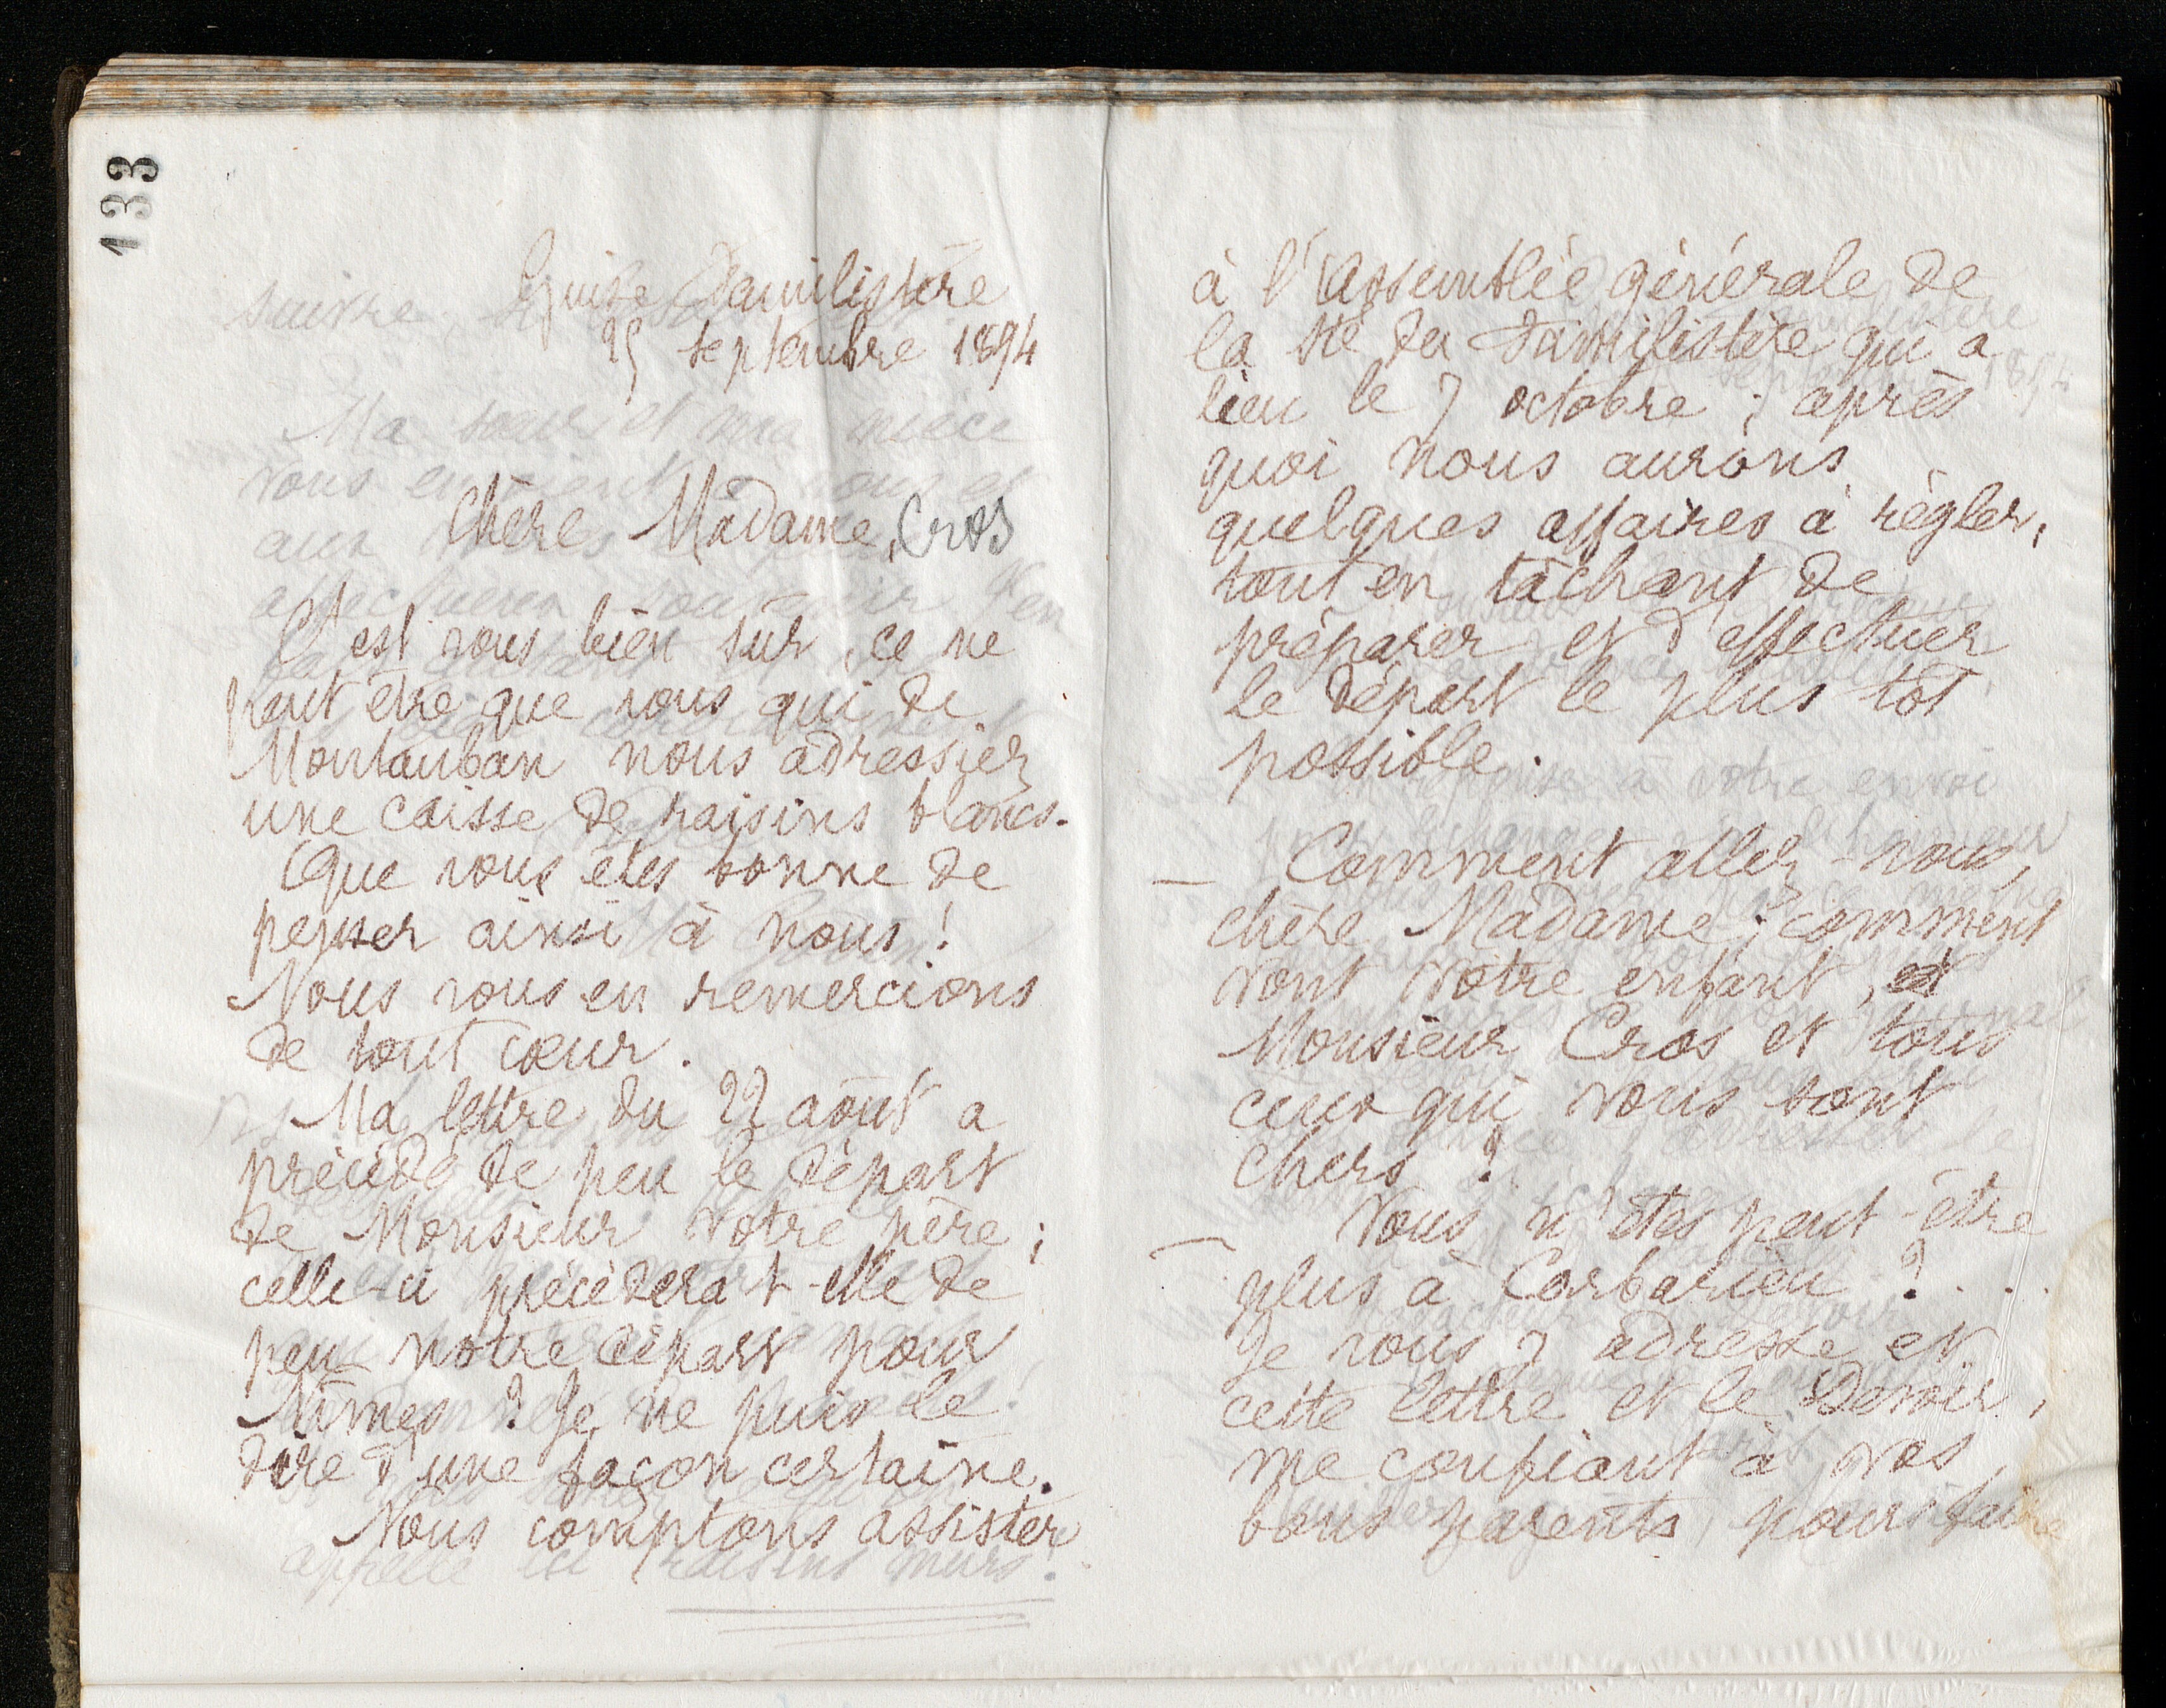 133
Guise Familistère
25 septembre 1894
Chère Madame, Cros
C'est vous bien sûr, ce ne
peut être que vous qui de
Montauban nous adressiez
une caisse de raisins blancs.
Que vous êtes bonne de
penser ainsi à nous !
Nous vous en remercions
de tout cœur.
Ma lettre du 22 août a
précédé de peu le départ
de Monsieur votre père ;
celle-ci précédera-t-elle de
peu notre départ pour
Nîmes ? Je ne puis le
dire d'une façon certaine.
Nous comptons assister
à l'Assemblée générale de
la Sté du Familistère qui a
lieu le 7 octobre ; après
quoi nous aurons
quelques affaires à régler,
tout en tâchant de
préparer et d'effectuer
le départ le plus tôt
possible.
— Comment allez-vous,
chère Madame ; comment
vont votre enfant, et
Monsieur Cros et tous
ceux qui vous sont
chers ?
— Vous n'êtes peut-être
plus à Corbarieu ? . . .
Je vous y adresse et
cette lettre et le Devoir,
me confiant à vos
bons parents, pour faire